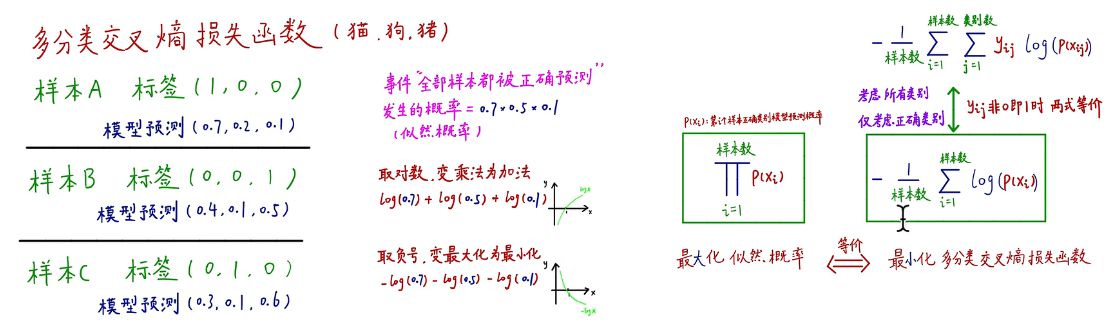 多分类交叉熵损失函数(猫.狗.猪)
样本A 标签(1,0,0)
模型预测(0.7,0.2,0.1)
样本B 标签(0,0,1)
模型预测(0.4,0.1,0.5)
样本C 标签(0,1,0)
模型预测(0.3,0.1,0.6)
事件"全部样本都被正确预测"
发生的概率=0.7×0.5×0.1
(似然概率)
取对数.变乘法为加法
log(0.7)+log(0.5)+log(0.1)
y
logx
x
取负号,变最大化为最小化
-log(0.7)-log(0.5)-log(0.1)
y
x
-logx
P(xi):第i个样本正确类别模型预测概率
样本数
∏ P(xi)
i=1
最大化似然概率
等价
最小化多分类交叉熵损失函数
样本数 类别数
-1/样本数 ∑ ∑ yij log(P(xij))
i=1 j=1
考虑所有类别
仅考虑正确类别
yij非0即1时 两式等价
样本数
-1/样本数 ∑ log(P(xi))
i=1